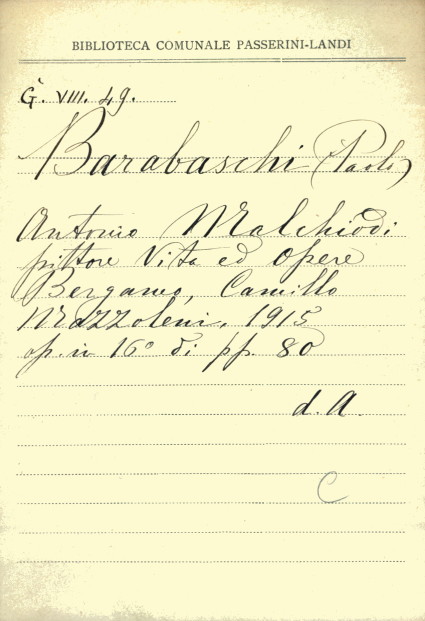 BIBLIOTECA COMUNALE PASSERINI-LANDI
G. VIII. 49.
Barabaschi (Paolo)
Antonio Malchiodi
pittore Vita ed opere
Bergamo, Camillo
Mazzoleni, 1915
op. in 16° di pp. 80
d. A.
C